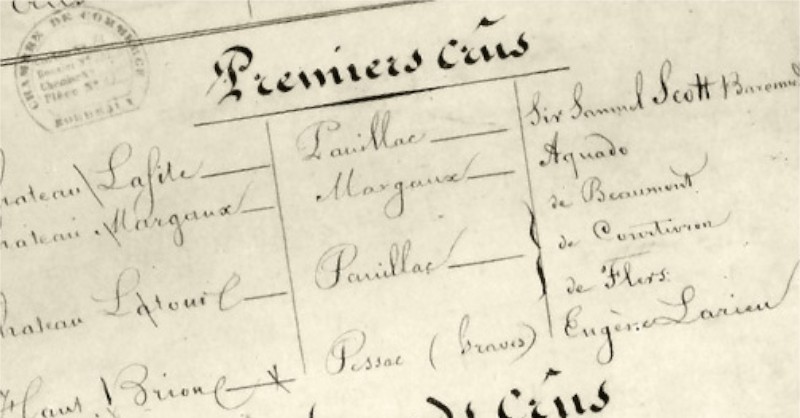 crus
CHAMBRE DE COMMERCE
BORDEAUX
Premiers crûs
hateau Lafite — Pauillac — Sir Samuel Scott Baronne
hateau Margaux — Margaux — Aguado
hateau Latour — Pauillac — { de Beaumont
de Courtivron
de Flers
Haut Brion — Pessac (Graves) Eugène Larieu
crûs